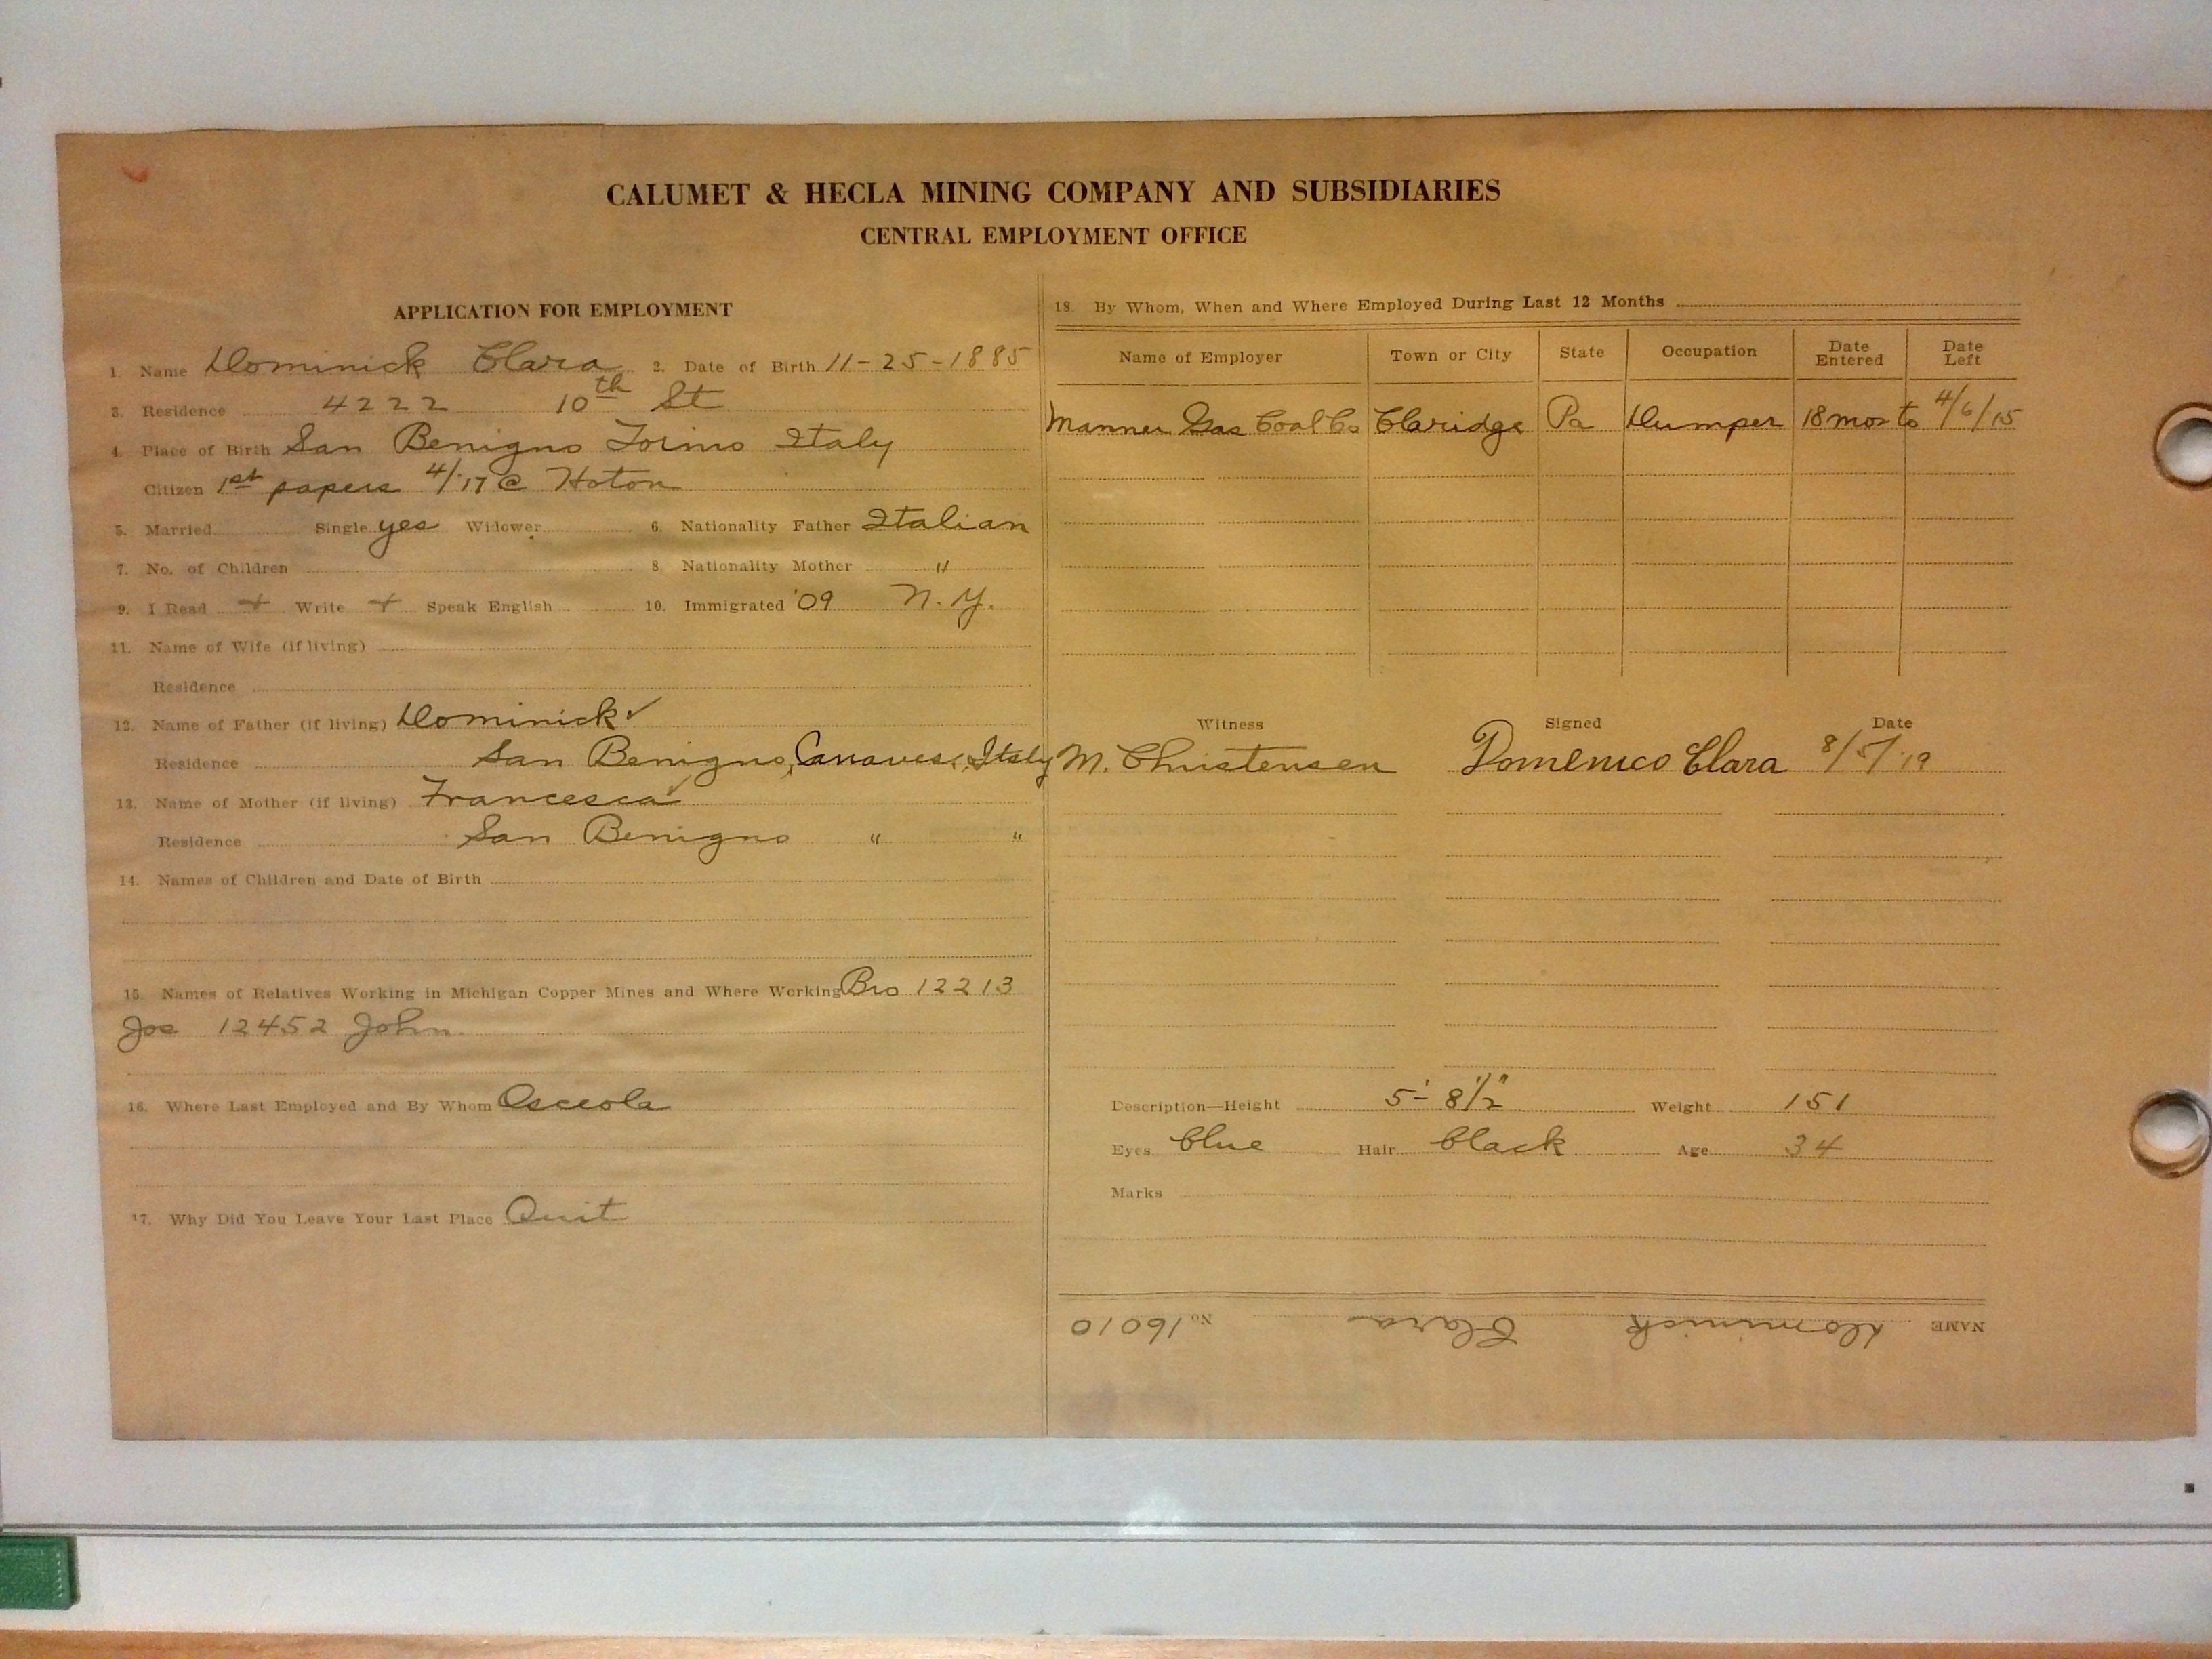 CALUMET & HECLA MINING COMPANY AND SUBSIDIARIES
CENTRAL EMPLOYMENT OFFICE
APPLICATION FOR EMPLOYMENT
1. Name Dominick Clara 2. Date of Birth 11-25-1885
3. Residence 4222 10th St
4. Place of Birth San Benigno Torino Italy
Citizen 1st papers 4/'17 @ Hoton
5. Married Single yes Widower 6. Nationality Father Italian
7. No. of Children 8. Nationality Mother "
9. I Read + Write + Speak English 10. Immigrated '09 N.Y.
11. Name of Wife (if living)
Residence
12. Name of Father (if living) Dominick ✓
Residence San Benigno, Canavese, Italy
13. Name of Mother (if living) Francesca ✓
Residence San Benigno " "
14. Names of Children and Date of Birth
15. Names of Relatives Working in Michigan Copper Mines and Where Working Bro 12213
Joe 12452 John
16. Where Last Employed and By Whom Osceola
17. Why Did You Leave Your Last Place Quit
18. By Whom, When and Where Employed During Last 12 Months
Name of Employer Town or City State Occupation Date Entered Date Left
Manner Gas Coal Co Claridge Pa Dumper 18 mos to 4/6/15
Witness Signed Date
M. Christensen Domenico Clara 8/5/19
Description—Height 5'-8 1/2" Weight 151
Eyes blue Hair black Age 34
Marks
NAME Dominick Clara No. 16010